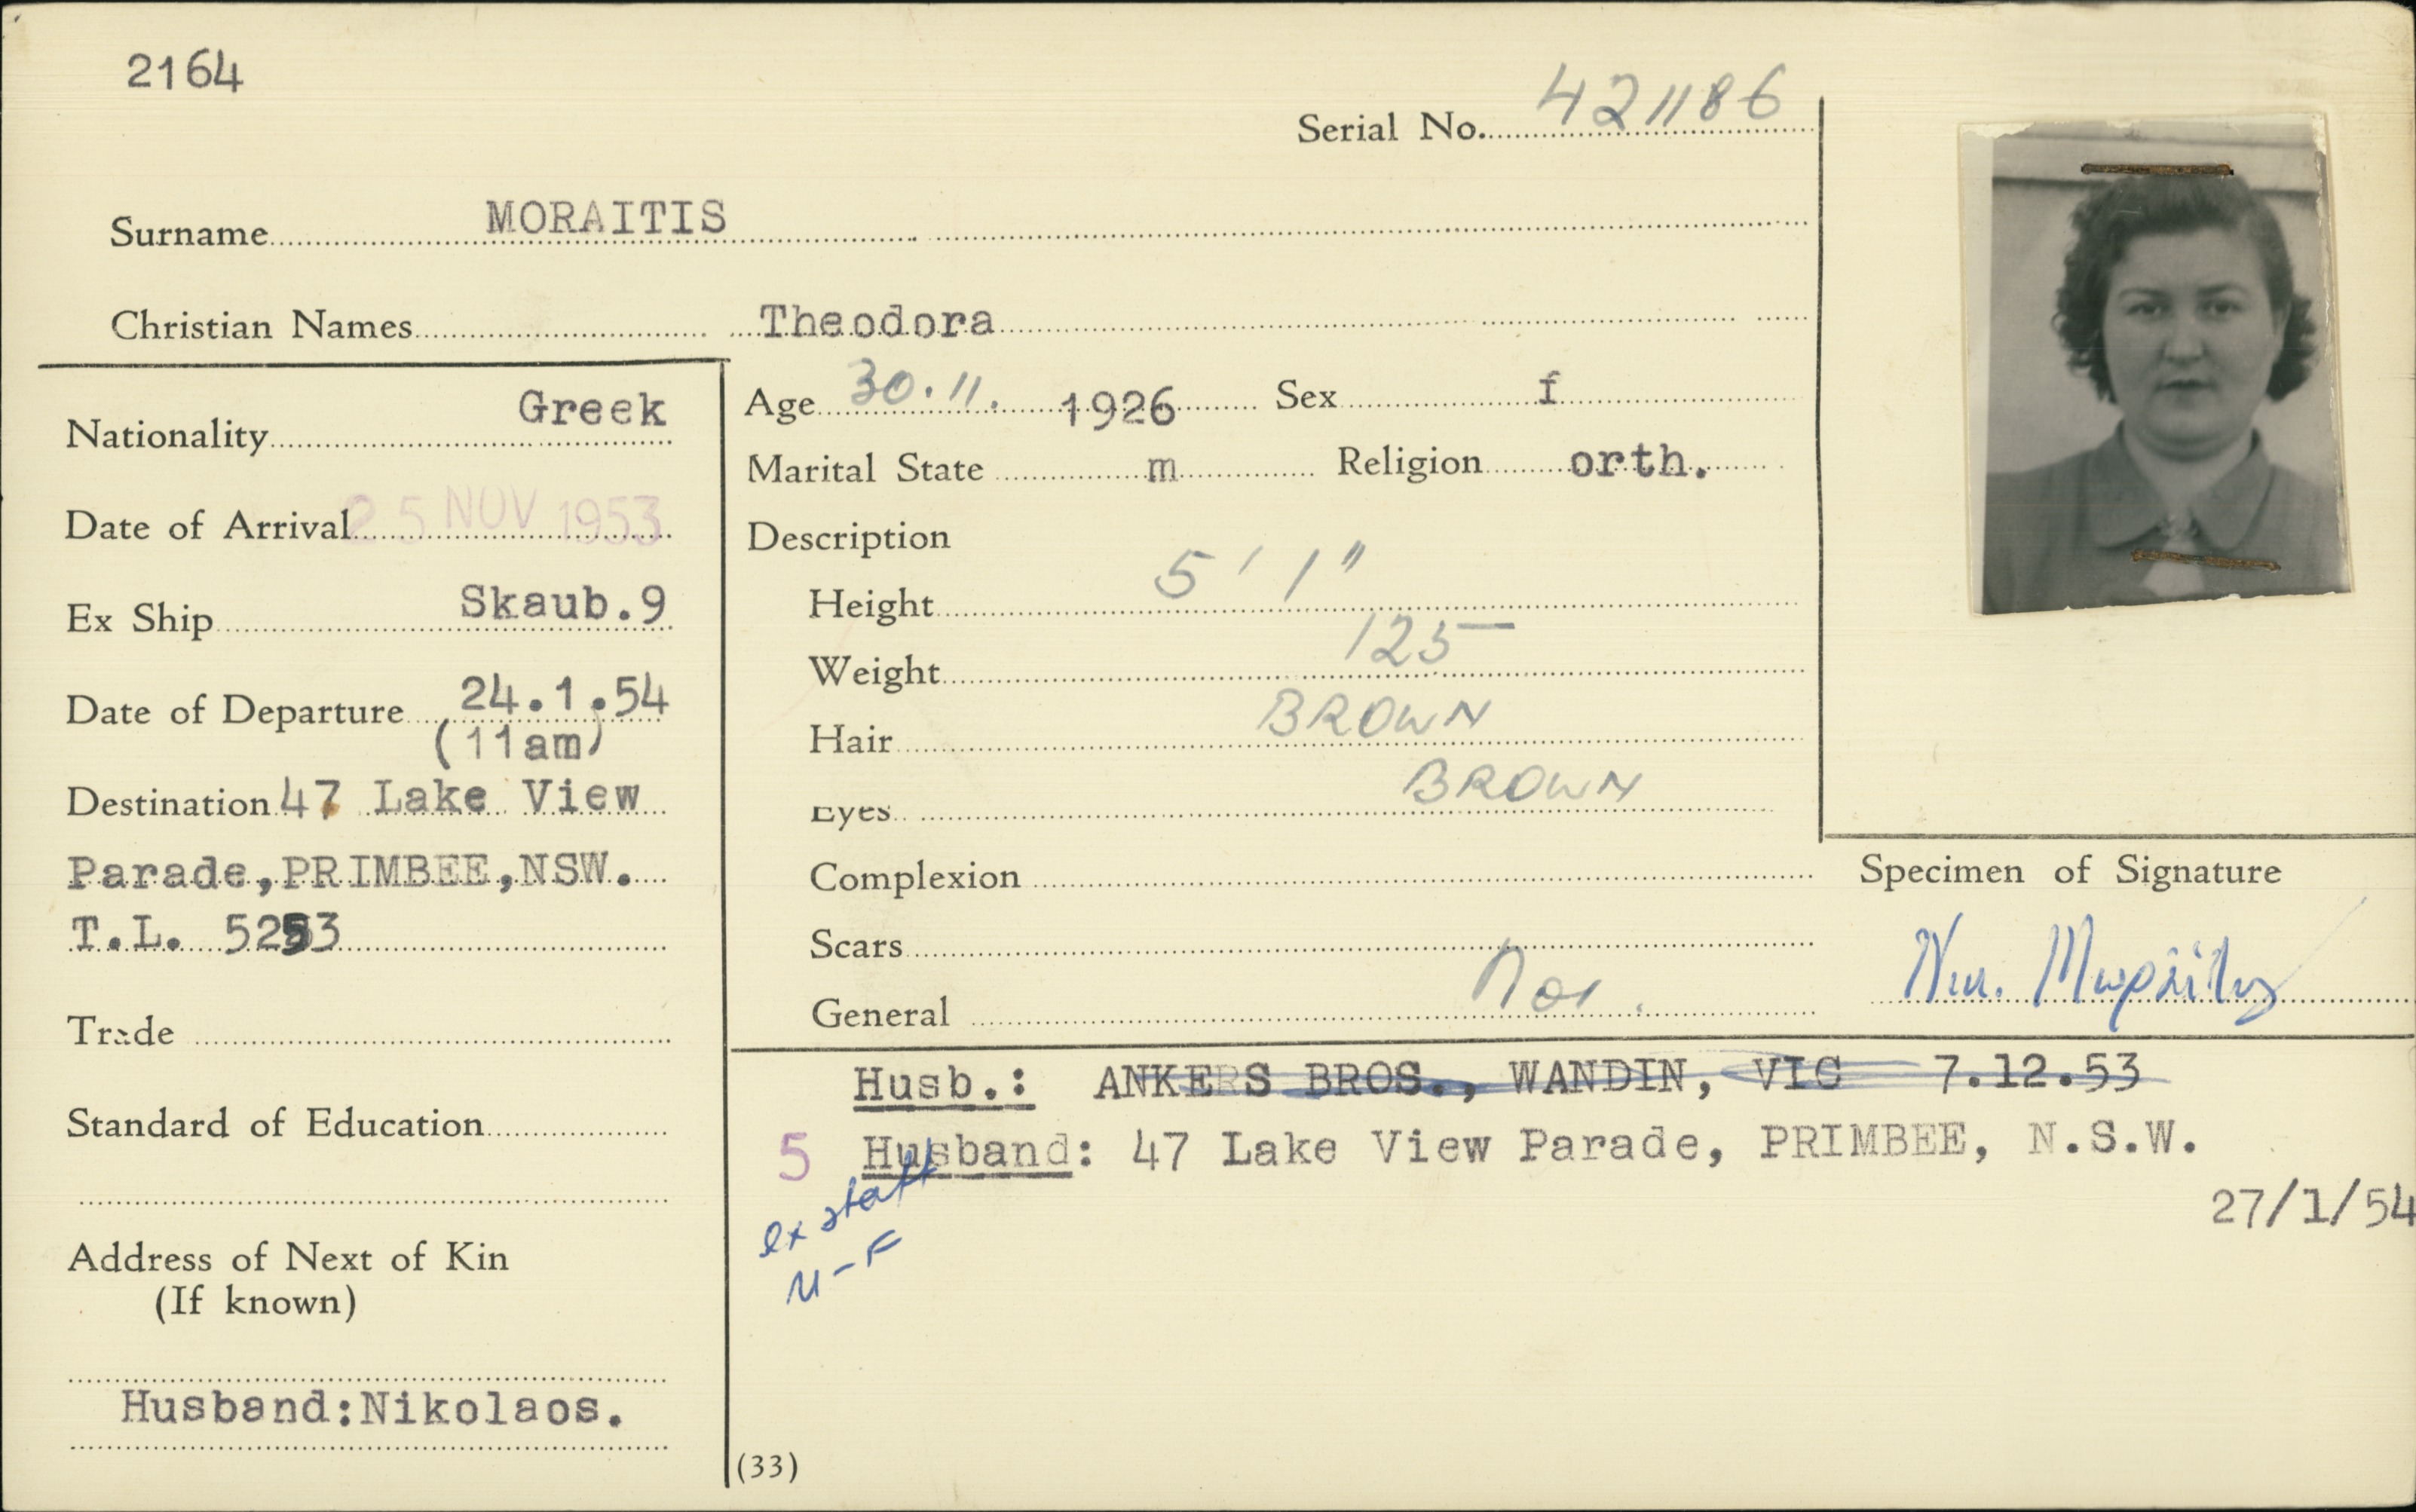 2164
Serial No. 421186
Surname MORAITIS
Christian Names Theodora
Nationality Greek
Date of Arrival 25 NOV 1953
Ex Ship Skaub.9
Date of Departure 24.1.54
(11am)
Destination 47 Lake View
Parade,PRIMBEE,NSW.
T.L. 5253
Trade
Standard of Education
Address of Next of Kin
(If known)
Husband:Nikolaos.
Age 30.11. 1926 Sex f
Marital State m Religion orth.
Description
Height 5' 1"
Weight 125
Hair BROWN
Eyes BROWN
Complexion
Scars
General
Specimen of Signature
Νικ. Μωραΐτης
Husb.: ANKERS BROS., WANDIN, VIC 7.12.53
5 Husband: 47 Lake View Parade, PRIMBEE, N.S.W.
27/1/54
ex staff
U-F
(33)